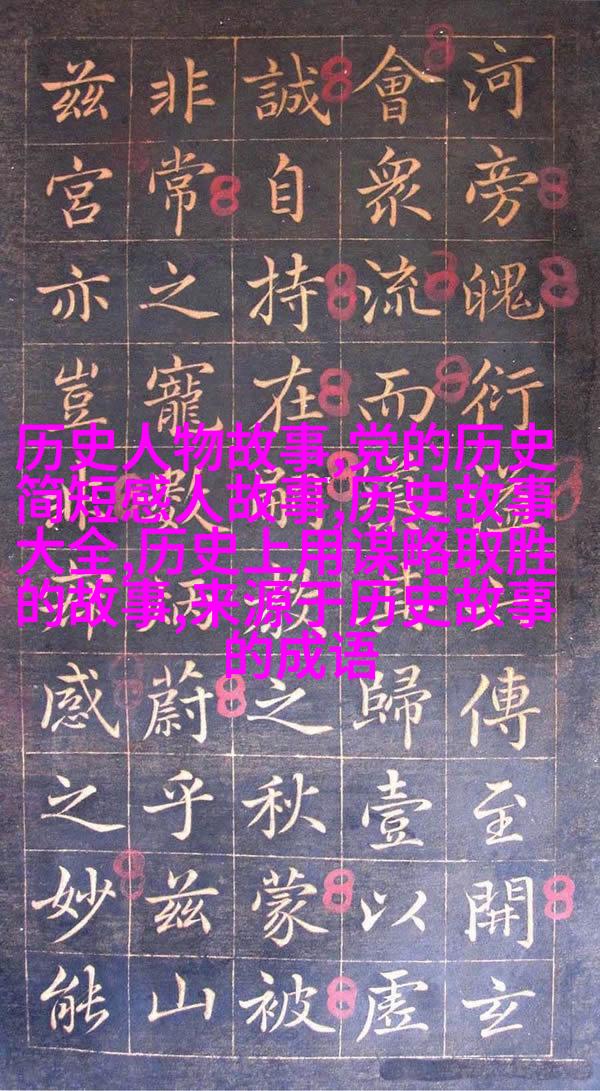 河旁魄衍傳至開玄
會衆流而歸壹以虛
誠自持在之秋蒙被
非常之寵蔚乎兹山
兹宮亦豈感之妙能
历史人物故事,党的历史
简短感人故事,历史故事
大全,历史上用谋略取胜
的故事,来源于历史故事
的成语